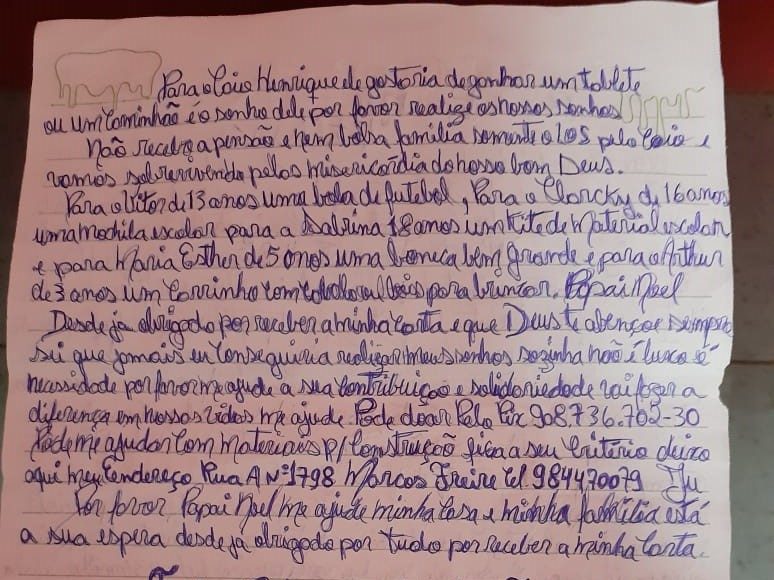 Para o Caio Henrique ele gostoria de ganhar um tablete
ou um Caminhão é o sonho dele por favor realize os nossos sonhos
Não recebo a pensão e nem bolsa família somente o LOS pelo Caio e
vamos sobrevivendo pelas misericórdia do nosso bom Deus.
Para o Vitor de 13 anos uma bola de futebol, Para a Clarcky de 16 anos
uma mochila escolar para a Sabrina 18 anos um Kite de Material escolar
e para Maria Esther de 5 anos uma boneca bem grande e para o Arthur
de 3 anos um Carrinho com cavalo ou bois para brincar. Papai Noel
Desde ja obrigado por receber a minha Carta e que Deus te abençoe sempre
sei que jamais eu Conseguiria realizar meus sonhos sozinha não é luxo é
necessidade por favor me ajude a sua Contribuição e solidariedade vai fazer a
diferença em nossas vidas me ajude. Pode doar Pelo Pix 908.736.702-30
Pode me ajudar Com materiais p/ Construção fica a seu Critério deixo
aqui meu Endereço Rua A Nº 1798 Marcos Freire Cel. 984470079
Por favor Papai Noel me ajude minha Casa e minha família está
a sua espera desde ja obrigado por tudo por receber a minha Carta.